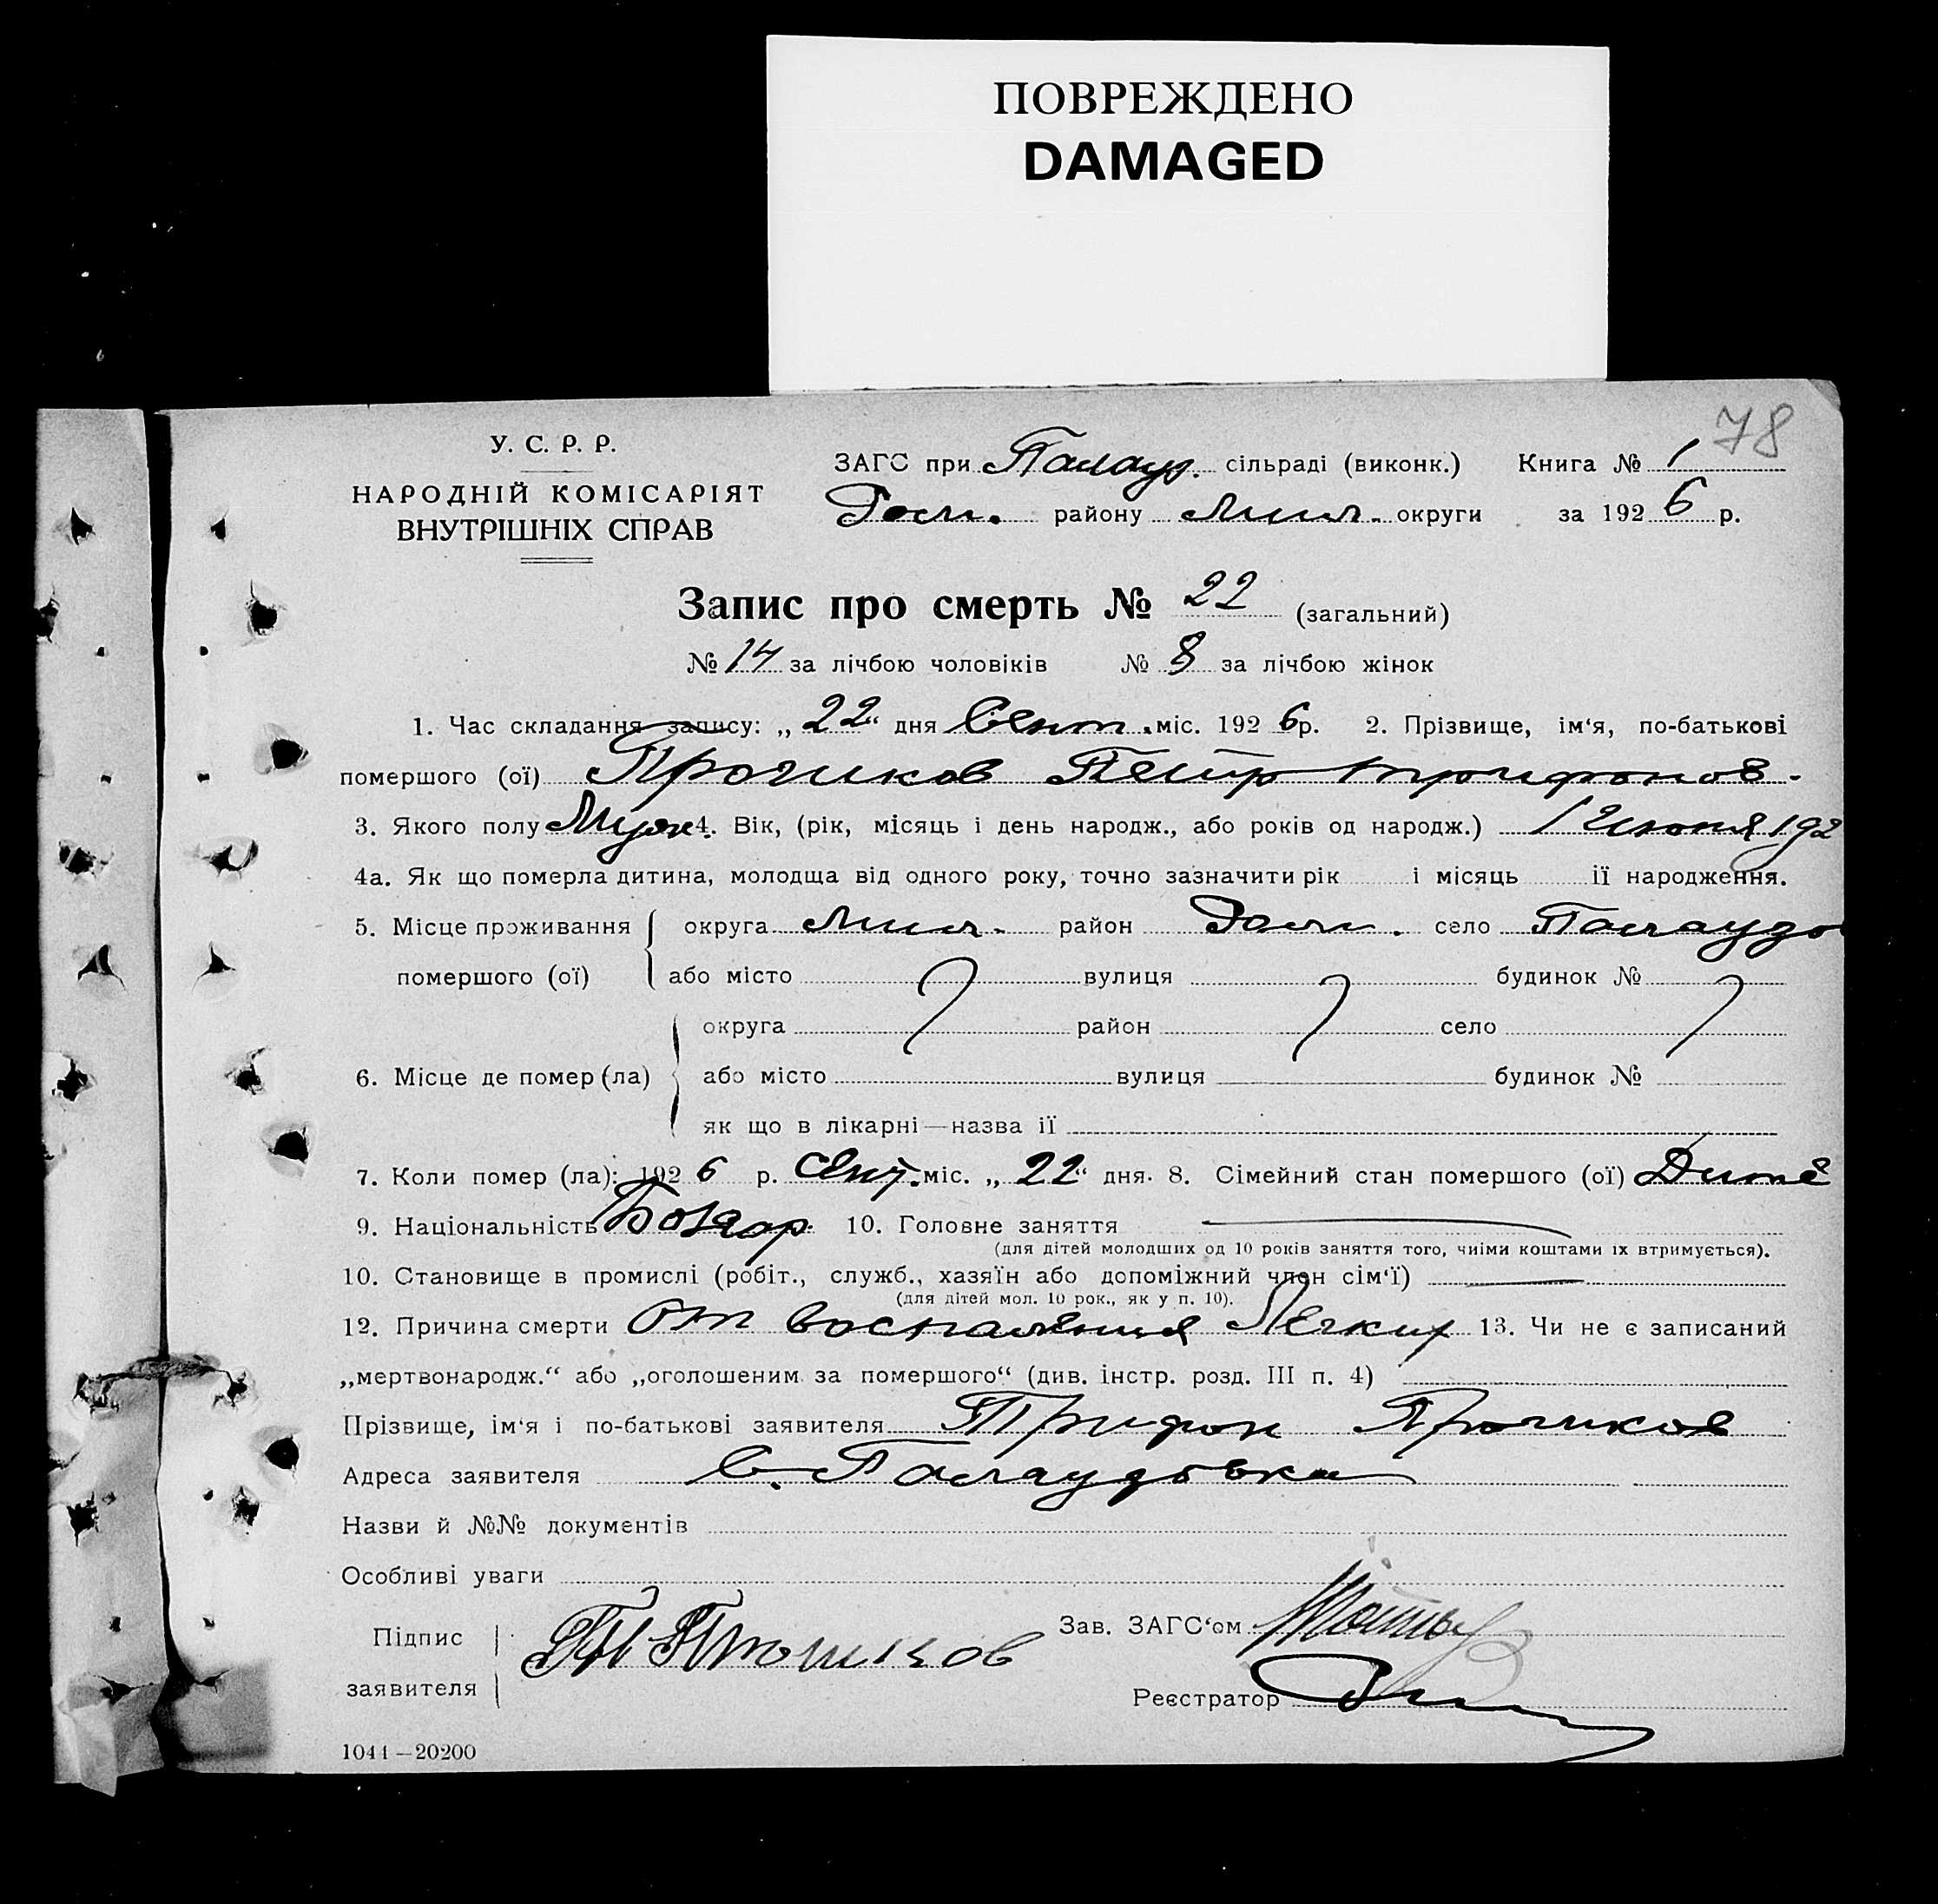 ПОВРЕЖДЕНО
DAMAGED
78
У. С. Р. Р.
НАРОДНІЙ КОМІСАРІЯТ
ВНУТРІШНІХ СПРАВ
ЗАГС при Палауз. сільраді (виконк.) Книга № 1
району округи за 1926 р.
Запис про смерть № 22 (загальний)
№ 14 за лічбою чоловіків № 8 за лічбою жінок
1. Час складання запису: „22“ дня Сент. міс. 1926 р. 2. Прізвище, ім‘я, по-батькові
помершого (ої) Петр Трифонов.
3. Якого полу Муж. 4. Вік, (рік, місяць і день народж., або років од народж.) 192
4а. Як що померла дитина, молодща від одного року, точно зазначити рік і місяць її народження.
5. Місце проживання округа район село
помершого (ої) або місто вулиця будинок №
округа район село
6. Місце де помер (ла) або місто вулиця будинок №
як що в лікарні—назва її
7. Коли помер (ла): 1926 р. Сент. міс. „22“ дня. 8. Сімейний стан помершого (ої) Дитё
9. Національність Болгар. 10. Головне заняття —
(для дітей молодших од 10 років заняття того, чиїми коштами їх втримується).
10. Становище в промислі (робіт., служб., хазяїн або допоміжний член сім‘ї) —
(для дітей мол. 10 рок., як у п. 10).
12. Причина смерти От воспаления Легких 13. Чи не є записаний
„мертвонародж.“ або „оголошеним за помершого“ (див. інстр. розд. III п. 4)
Прізвище, ім‘я і по-батькові заявителя Трифон
Адреса заявителя С.
Назви й №№ документів
Особливі уваги
Підпис
заявителя
Зав. ЗАГС‘ом
Реєстратор
1044—20200